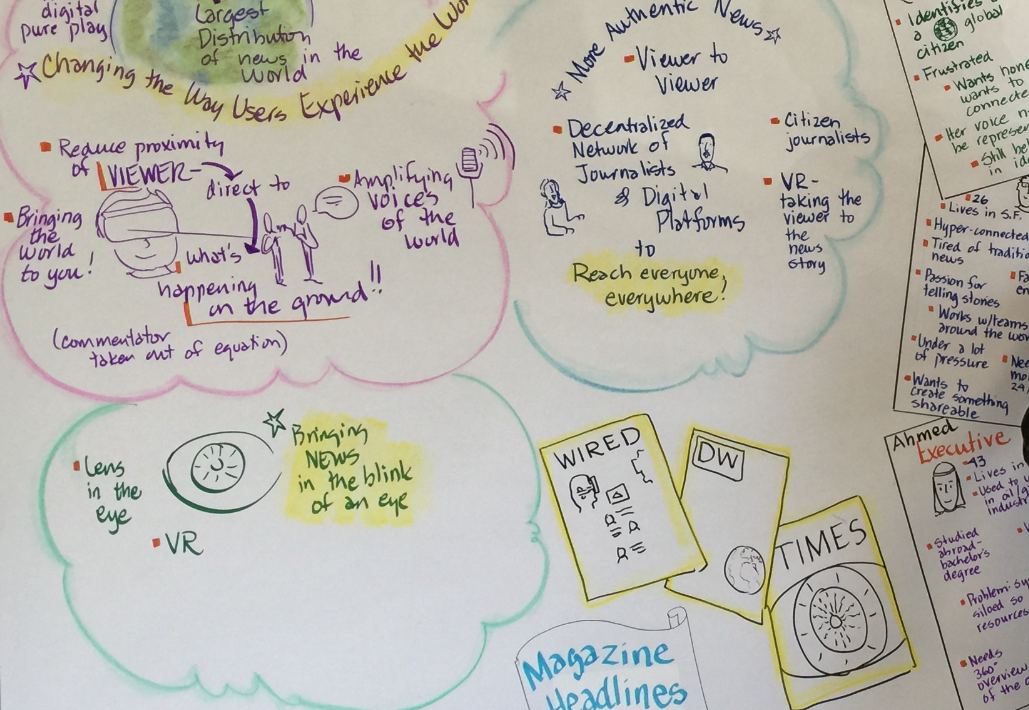 digital
pure play
Largest
Distribution
of news in the
World
Changing the Way Users Experience the
Reduce proximity
of VIEWER-
direct to
what's
happening
on the ground!!
Bringing
the
world
to you!
Amplifying
voices
of the
world
(commentator
taken out of equation)
More Authentic News
Viewer to
Viewer
Decentralized
Network of
Journalists
& Digital
Platforms
to
Reach everyone,
everywhere!
Citizen
journalists
VR-
taking the
viewer to
the
news
story
Lens
in the
eye
VR
Bringing
NEWS
in the blink
of an eye
WIRED
DW
TIMES
Magazine
Headlines
Identifies
a global
citizen
Frustrated
Wants
wants to
Her voice
be
Still
in
26
Lives in S.F.
Hyper-connected
Tired of
news
Passion for
telling stories
Works w/teams
around the
Under a lot
of pressure
Wants to
create something
shareable
Ahmed
Executive
43
Lives in
Used to
in
Studied
abroad-
bachelor's
degree
Problem:
siloed so
resources
Needs
360°
overview
of the